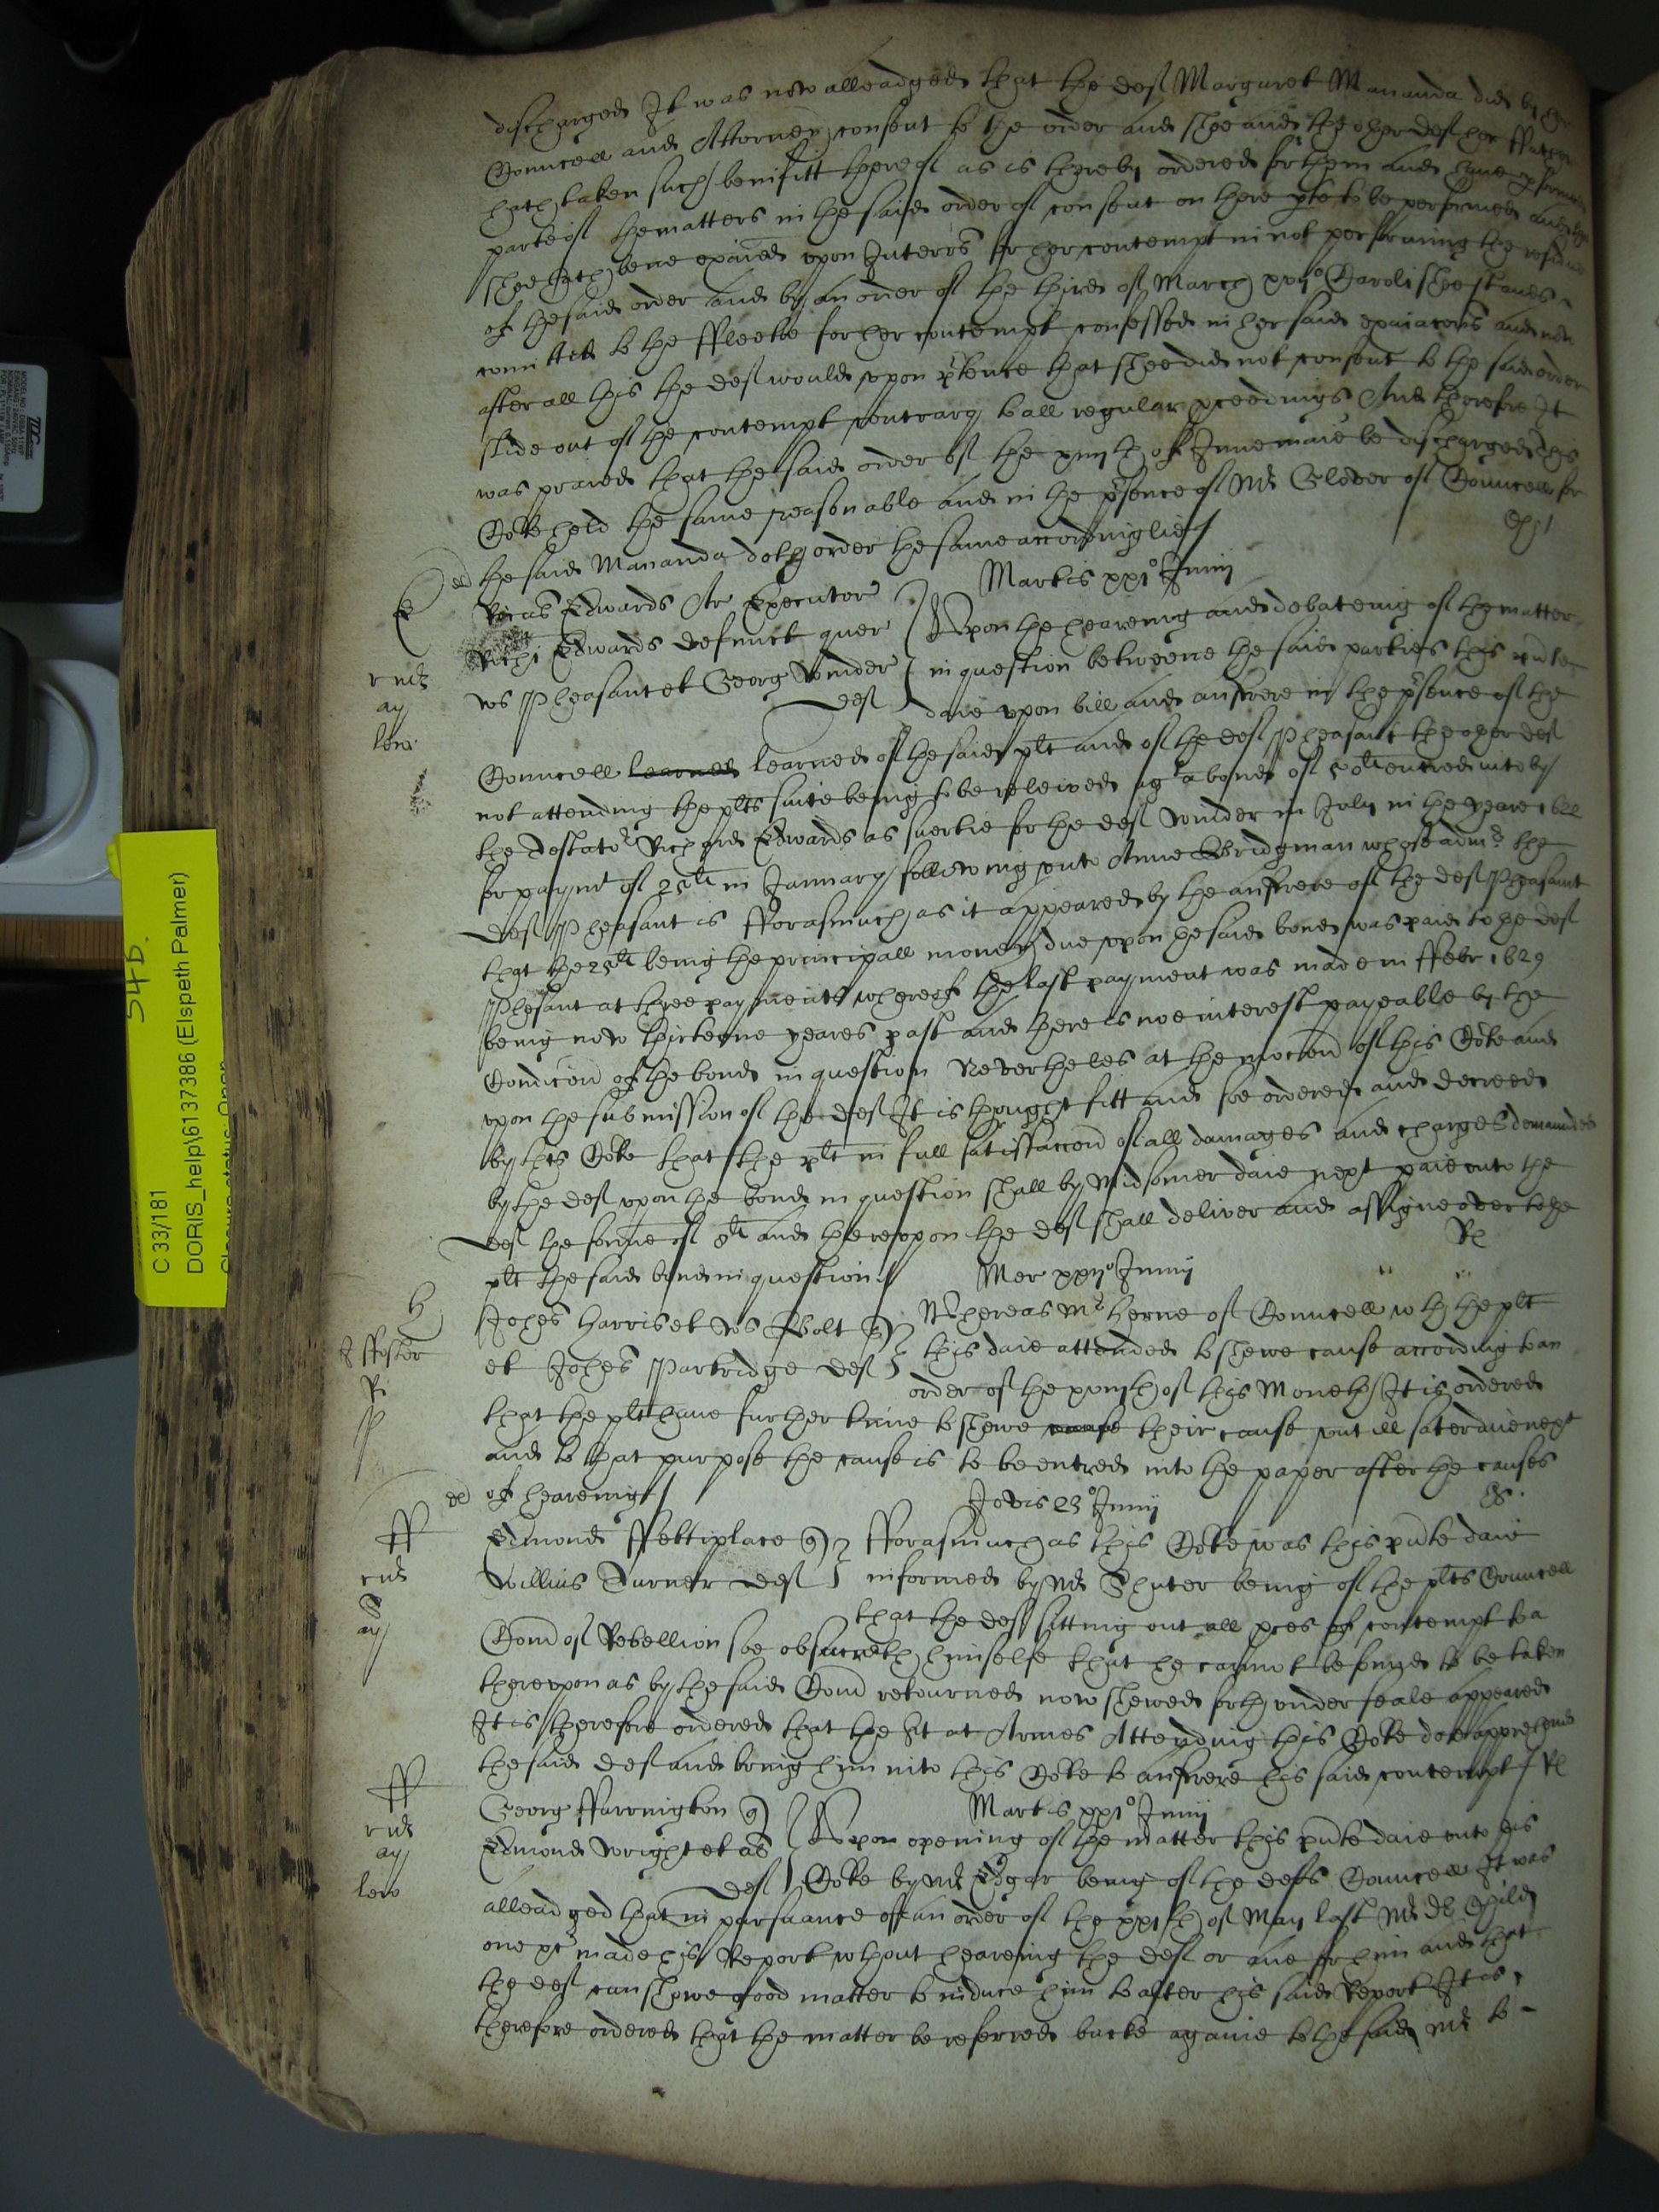 discharged It was now alleadged that the def Margaret Mananda did by her
Councell and Attorney consent to the order and shee and the other def her ffather
hath taken such benifitt thereof as is thereby ordered for them and have
parte of the matters in the said order of consent on there pte to be performed and
shee hath bene exaied upon Interrs for her contempt in not performing the residue
of the said order and by an order of the third of March xvijo Caroli shee stands
comitted to the ffleete for her contempt confessed in her said exaiacons and now
after all this the def would upon ptence that shee did not consent to the said order
slide out of the contempt contrary to all regular pceedings And therefore It
was praied that the said order of the of June maie be discharged This
Cote held the same reasonable and in the psence of Mr Glover of Councell for
the said Mananda doth order the same accordinglie
Martis xxjo Junij
Edwards Ar Executor
Richi Edwards defunct quer
vs Pheasant et Georg Winder
def
Upon the hearenig and debatenig of the matter
in question betweene the said parties this pnte
daie upon bill and answere in the psence of the
Councell learned learned of the said plt and of the def Pheasant the other def
not attending the plts suite being to be releived agt a bond of 50li entred into by
the Testator Richard Edwards as suertie for the def Winder in July in the yeare 1622
for paymt of 25li in January following unto Anne Bridgman whose admr the
def Pheasant is fforasmuch as it appeared by the answere of the def Pheasant
that the 25li being the principall money due upon the said bond was paid to the def
Phesant at three payments whereof the last payment was made in ffebr 1629
being now thirteene yeares past and there is noe interest payeable by the
Condicon of the bond in question Neverheles at the mocon of this Cote and
upon the submission of the def It is thought fitt and soe ordered and decreed
by this Cote that the plt in full satisfaccon of all damages and charges demaunded
by the def upon the bond in question shall by Midsomer daie next paie unto the
def the somme of 5li and thereupon the def shall deliver and assigne over to the
plt the said bond in question
Mer xxijo Junij
Johes Harris et vs Bolt
et Johes Partridge def
Whereas Mr Herne of Councell wth the plt
this daie attended to shewe cause according to an
order of the xviijth of this Moneth It is ordered
that the plt have further time to shewe cause their cause untill Saterdaie next
and to that purpose the cause is to be entred into the paper after the causes
of hearenig
Jovis 23o Junij
Edmond ffettiplace q
Willius Turner def
fforasmuch as this Cote was this pnte daie
informed by Mr Shuter being of the plts Councell
that the def sitting out all pces of contempt to a
Com of Rebellion soe obsureth himselfe that he cannot be found to be taken
thereupon as by the said Com retourned now shewed forth under seale appeared
It is therefore ordered that the Sjt at Armes Attending this Cote doe apprehend
the said def and bring him into this Cote to answere his said contempt
Martis xxjo Junij
Georg ffarrnigton q
Edmond Wright et as
def
Upon opening of the matter this pnte daie unto this
Cote by Mr Edgar being of the defs Councell It was
alleadged that in pursuance of an order of the xxjth of May last Mr Dr Childe
one &c made his Report wthout hearenig the def or anie for him and that
the def can shewe good matter to induce him to alter his said Report It is
therefore ordered that the matter be referred backe againe to the said Mr to
E
H
ffoster
ff
ff
54D.
C 33/181
DORIS_help\6137386 (Elspeth Palmer)